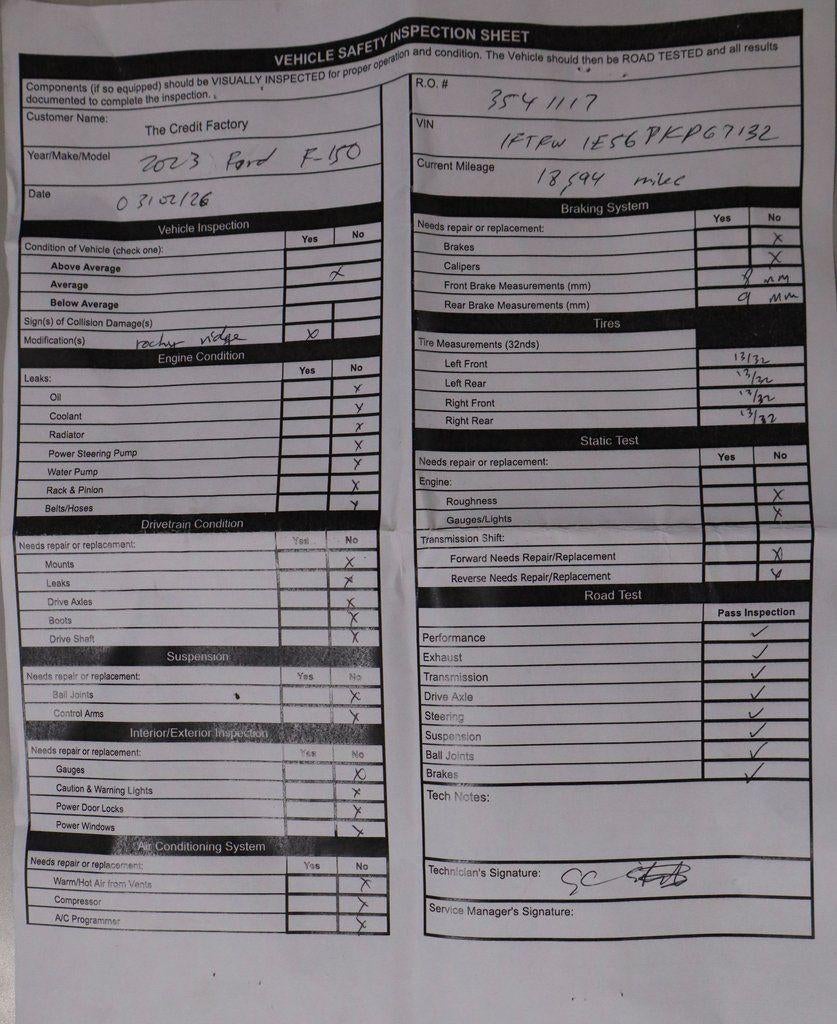 VEHICLE SAFETY INSPECTION SHEET
Components (if so equipped) should be VISUALLY INSPECTED for proper operation and condition. The Vehicle should then be ROAD TESTED and all results
documented to complete the inspection.
Customer Name: The Credit Factory
Year/Make/Model 2023 Ford F-150
Date 03/02/26
Vehicle Inspection
Condition of Vehicle (check one): Yes No
Above Average
Average X
Below Average
Sign(s) of Collision Damage(s)
Modification(s) rocky ridge X
Engine Condition
Leaks: Yes No
Oil X
Coolant X
Radiator X
Power Steering Pump X
Water Pump X
Rack & Pinion X
Belts/Hoses X
Drivetrain Condition
Needs repair or replacement: Yes No
Mounts X
Leaks X
Drive Axles X
Boots X
Drive Shaft X
Suspension
Needs repair or replacement: Yes No
Ball Joints X
Control Arms X
Interior/Exterior Inspection
Needs repair or replacement: Yes No
Gauges X
Caution & Warning Lights X
Power Door Locks X
Power Windows X
Air Conditioning System
Needs repair or replacement: Yes No
Warm/Hot Air from Vents X
Compressor X
A/C Programmer X
R.O. # 3541117
VIN 1FTFW1E56PKP67132
Current Mileage 18,594 miles
Braking System
Needs repair or replacement: Yes No
Brakes X
Calipers X
Front Brake Measurements (mm) 8 mm
Rear Brake Measurements (mm) 9 mm
Tires
Tire Measurements (32nds)
Left Front 13/32
Left Rear 13/32
Right Front 13/32
Right Rear 13/32
Static Test
Needs repair or replacement: Yes No
Engine:
Roughness X
Gauges/Lights X
Transmission Shift:
Forward Needs Repair/Replacement X
Reverse Needs Repair/Replacement X
Road Test
Pass Inspection
Performance ✓
Exhaust ✓
Transmission ✓
Drive Axle ✓
Steering ✓
Suspension ✓
Ball Joints ✓
Brakes ✓
Tech Notes:
Technician's Signature:
Service Manager's Signature: